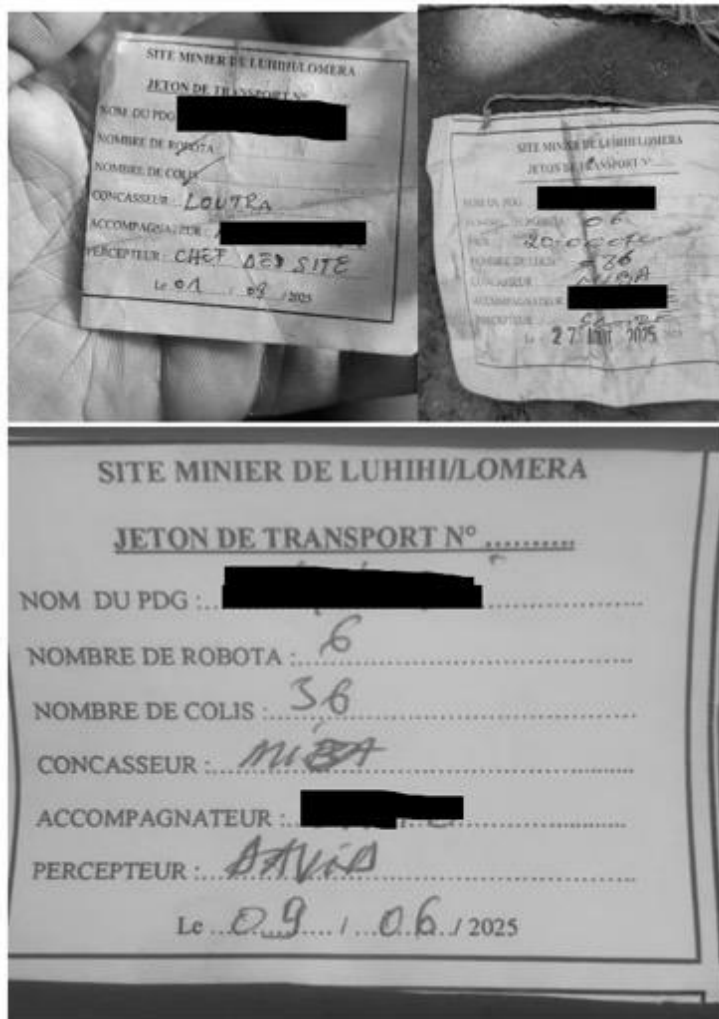 SITE MINIER DE LUHIHI/LOMERA
JETON DE TRANSPORT N°
NOM DU PDG
NOMBRE DE ROBOTA
NOMBRE DE COLIS
CONCASSEUR : LOUTRA
ACCOMPAGNATEUR :
PERCEPTEUR : CHEF DES SITE
Le 01 / 09 / 2025
SITE MINIER DE LUHIHI/LOMERA
JETON DE TRANSPORT N°
NOM DU PDG
06
NOMBRE DE COLIS 36
CONCASSEUR MIBA
ACCOMPAGNATEUR
PERCEPTEUR
Le 27 2025
SITE MINIER DE LUHIHI/LOMERA
JETON DE TRANSPORT N° ..........
NOM DU PDG :
NOMBRE DE ROBOTA : 6
NOMBRE DE COLIS : 36
CONCASSEUR : MIBA
ACCOMPAGNATEUR :
PERCEPTEUR : DAVID
Le 09 / 06 / 2025